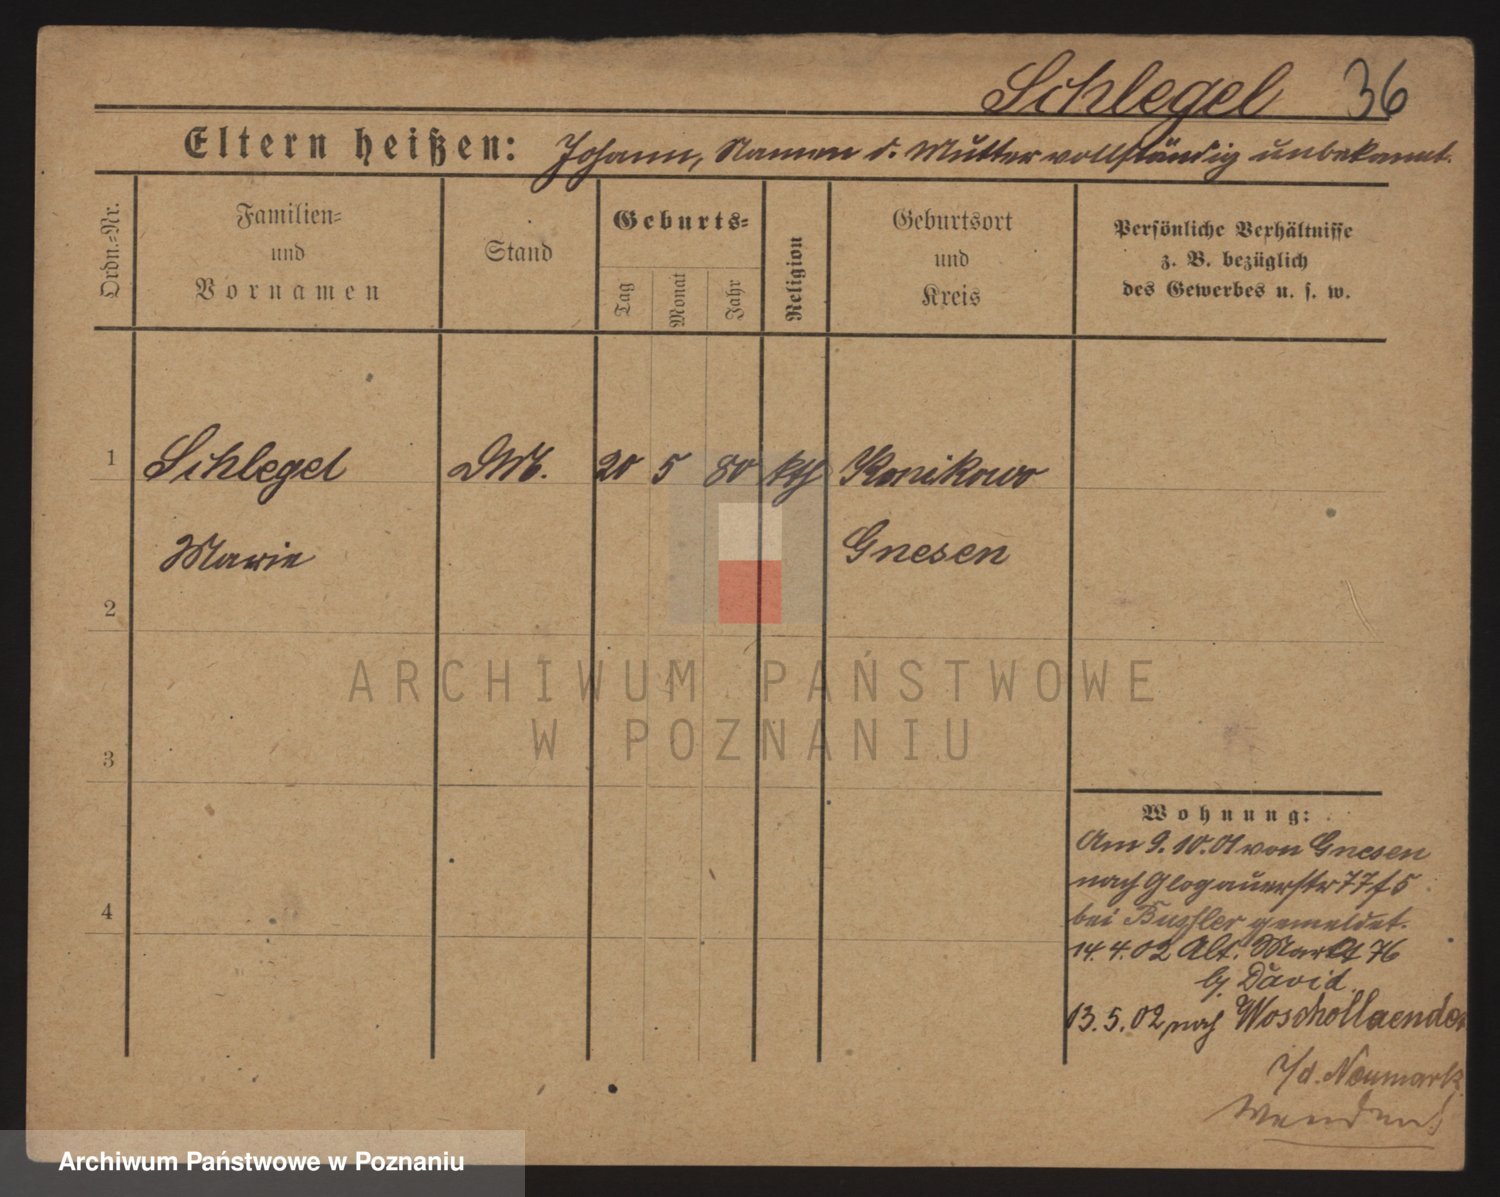 Schlegel 36
Eltern heißen: Johann, Namen d. Mutter vollständig unbekannt.
Ordn.=Nr.
Familien=
und
Vornamen
Stand
Geburts=
Tag
Monat
Jahr
Religion
Geburtsort
und
Kreis
Persönliche Verhältnisse
z. B. bezüglich
des Gewerbes u. s. w.
1 Schlegel 20 5 80 kth Konikowo
Marie Gnesen
2
ARCHIWUM PAŃSTWOWE
W POZNANIU
3
4
Wohnung:
Am 9.10.01 von Gnesen
nach Glogauerstr 77
bei gemeldet.
14.4.02 Alt. Markt 76
bj. David
13.5.02 nach Woschollaender
i/d. Neumark
Archiwum Państwowe w Poznaniu